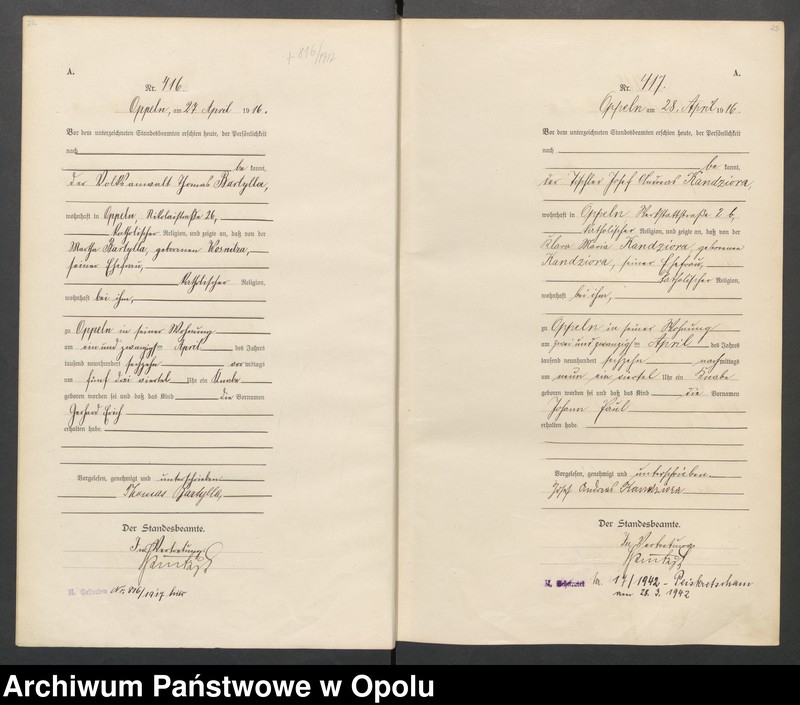 + 816/1917
A.
Nr. 416.
Oppeln, am 27. April 1916.
Vor dem unterzeichneten Standesbeamten erschien heute, der Persönlichkeit
nach
be kannt,
der Volksanwalt Thomas Bartylla,
wohnhaft in Oppeln, Nikolaistraße 26,
katholischer Religion, und zeigte an, daß von der
Martha Bartylla, geborenen Kosndra,
seiner Ehefrau,
katholischer Religion,
wohnhaft bei ihm,
zu Oppeln in seiner Wohnung
am einundzwanzigsten April des Jahres
tausend neunhundert sechzehn vor mittags
um fünf drei viertel Uhr ein Knabe
geboren worden sei und daß das Kind die Vornamen
Gerhard Erich
erhalten habe.
Vorgelesen, genehmigt und unterschrieben
Thomas Bartylla,
Der Standesbeamte.
In Vertretung
H. Gestorben Nr. 816/1917 hier
25
A.
Nr. 417.
Oppeln am 28. April 1916.
Vor dem unterzeichneten Standesbeamten erschien heute, der Persönlichkeit
nach
be kannt,
der Tischler Josef Andreas Kandziora,
wohnhaft in Oppeln Werkstattstraße 2 b,
katholischer Religion, und zeigte an, daß von der
Klara Maria Kandziora, geborenen
Kandziora, seiner Ehefrau,
katholischer Religion,
wohnhaft bei ihm,
zu Oppeln in seiner Wohnung
am zweiundzwanzigsten April des Jahres
tausend neunhundert sechzehn nachmittags
um neun ein viertel Uhr ein Knabe
geboren worden sei und daß das Kind die Vornamen
Johann Paul
erhalten habe.
Vorgelesen, genehmigt und unterschrieben
Josef Andreas Kandziora
Der Standesbeamte.
In Vertretung
H. Geheiratet Nr. 17/1942 - Peiskretscham
am 28. 3. 1942
Archiwum Państwowe w Opolu